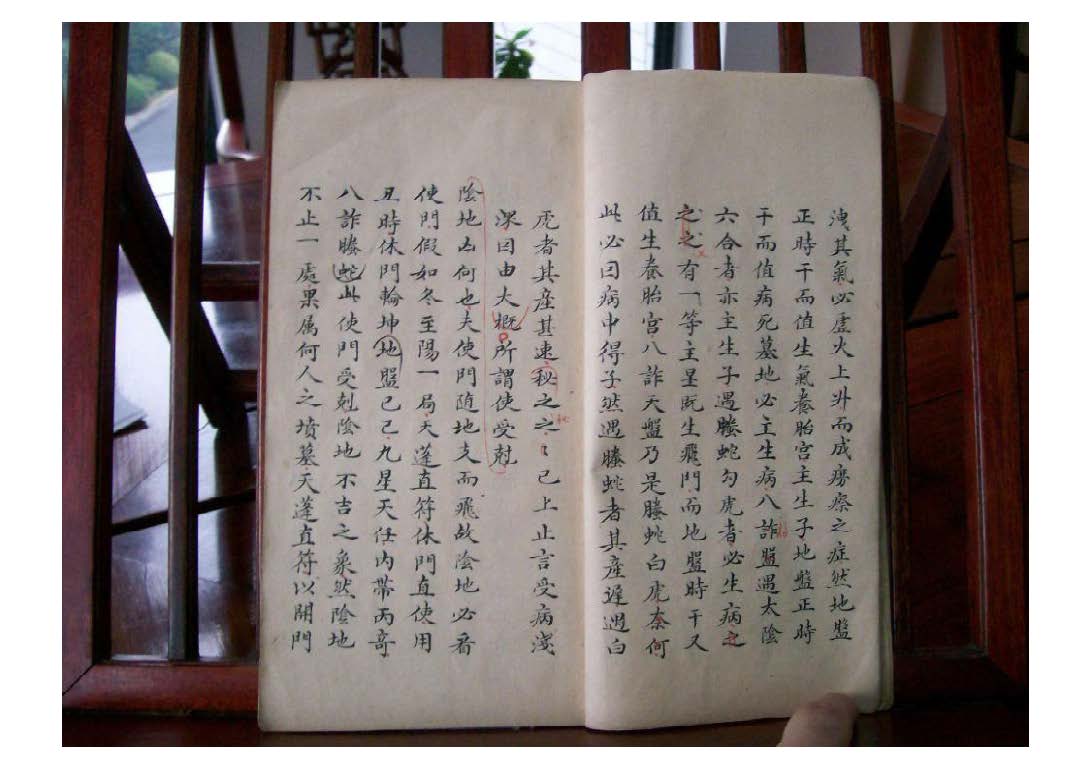 洩其氣必虛火上升而成癆瘵之症然地盤
正時干而值生氣養胎宫主生子地盤正時
干而值病死墓地必主生病八詐盤遇太陰
六合者亦主生子遇螣蛇勾虎者必生病之
之之有一等主星既生飛門而地盤時干又
值生養胎宫八詐天盤乃是螣蛇白虎奈何
此必因病中得子然遇螣蛇者其産遲遇白
虎者其産甚速秘之之〻已上止言受病淺
深因由大概所謂使受尅
陰地凶何也夫使門随地支而飛故陰地必看
使門假如冬至陽一局天蓬直符休門直使用
丑時休門輪坤地盤己己九星天任内帶丙奇
八詐螣蛇此使門受剋陰地不吉之象然陰地
不止一處果属何人之墳墓天蓬直符以開門